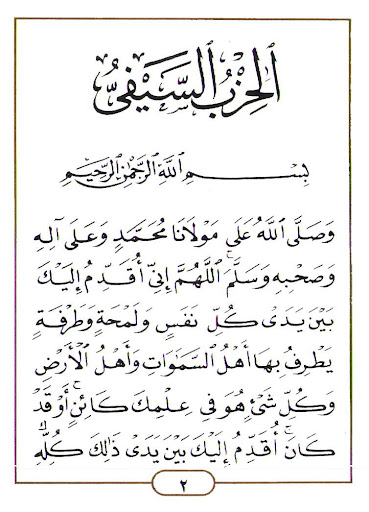 الحِزْبُ السَّيْفِيُّ
بِسْمِ ٱللَّهِ ٱلرَّحْمَٰنِ ٱلرَّحِيمِ
وَصَلَّى ٱللَّهُ عَلَى مَوْلَانَا مُحَمَّدٍ وَعَلَى آلِهِ
وَصَحْبِهِ وَسَلَّمَ ٱللَّهُمَّ إِنِّي أُقَدِّمُ إِلَيْكَ
بَيْنَ يَدَىْ كُلِّ نَفَسٍ وَلَمْحَةٍ وَطَرْفَةٍ
يَطْرِفُ بِهَا أَهْلُ ٱلسَّمَٰوَاتِ وَأَهْلُ ٱلْأَرْضِ
وَكُلِّ شَىْءٍ هُوَ فِي عِلْمِكَ كَائِنٌ أَوْ قَدْ
كَانَ أُقَدِّمُ إِلَيْكَ بَيْنَ يَدَىْ ذَٰلِكَ كُلِّهِ
٢